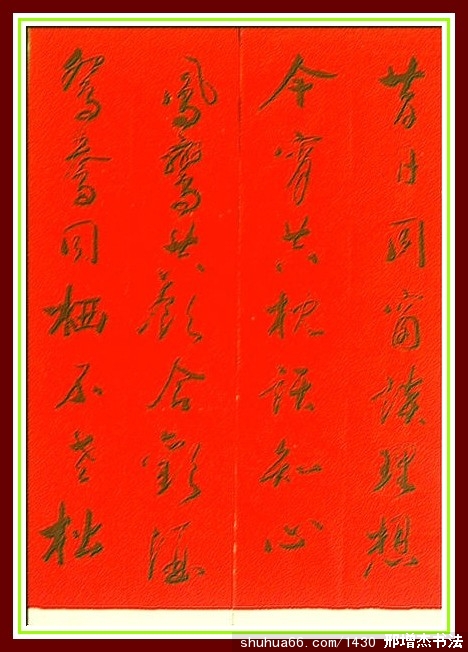 昔日同窗談理想
今宵共枕話知心
鳳鸞共飲合歡酒
鴛鴦同栖不老松
shuhua66.com/1430 邢增杰书法